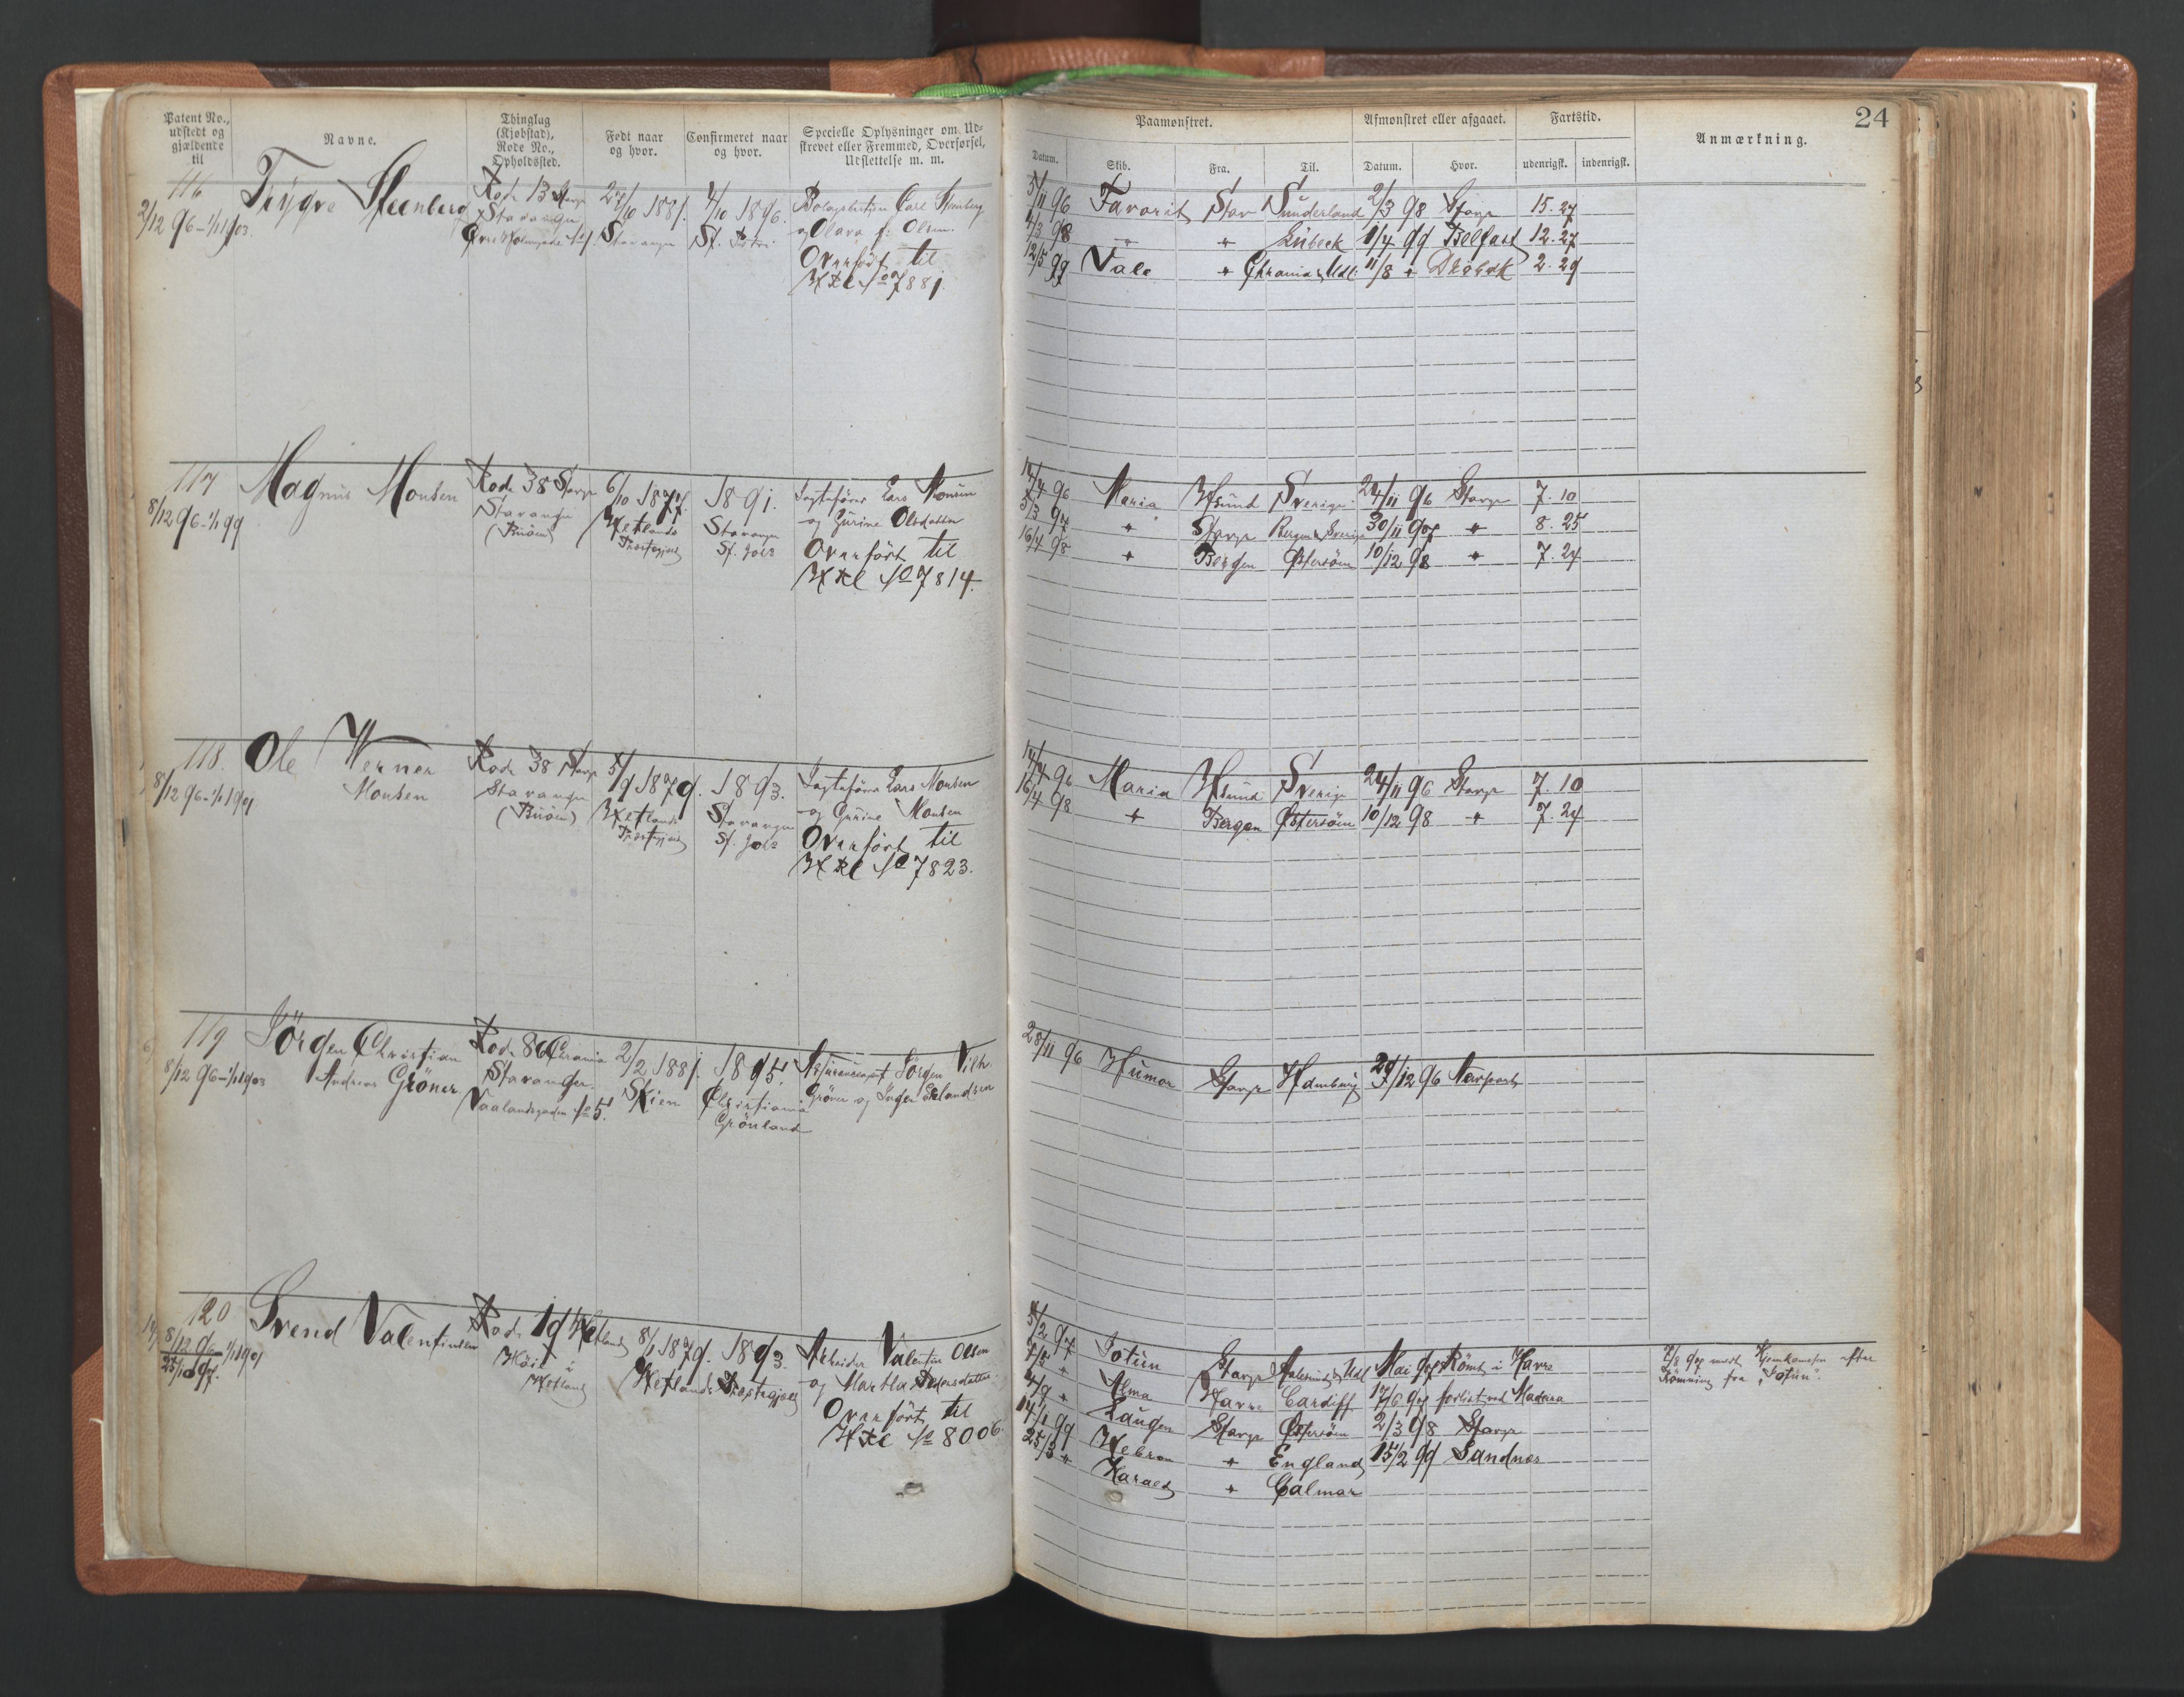 24
Patent No., udstedt og gjældende til
Navne.
Thinglag (Kjøbstad), Rode No., Opholdssted.
Født naar og hvor.
Confirmeret naar og hvor.
Specielle Oplysninger om Ud- skrevet eller Fremmed, Overførsel, Udslettelse m. m.
Paamønstret.
Afmønstret eller afgaaet.
Fartstid.
Anmærkning.
Datum.
Skib.
Fra.
Til.
Datum.
Hvor.
udenrigsk.
indenrigsk.
116
2/12 96 - 1/1 1903.
Trygve Steenberg
Rode 13 Stavgr
Stavanger
27/10 1881.
Stavanger
4/10 1896.
St. Petri
Carl Steenberg
og Olava f. Olsen.
Overført til
Hxl № 7881.
5/11 96 Favorit Stav Sunderland 2/3 98 Stavgr 15. 27
4/3 98 " " Lübeck 1/4 99 Belfast 12. 27
12/5 99 Vale " Chrania & Udl. 11/8 " Drøbak 2. 29
117
8/12 96 - 1/1 99
Magnus Monsen
Rode 38 Stavgr
Stavanger
(Buöen)
6/10 1877.
Hetlands
Præstegjæld
1891.
Stavanger
St. Johs
Jagtefører Lars Monsen
og Gurine Olsdatter
Overført til
Hxl № 7814.
14/4 96 Maria Hsund Sverige 24/11 96 Stavgr 7. 10
5/3 97 " Stavgr Bergen & Sverige 30/11 97 " 8. 25
16/4 98 " Bergen Østersöen 10/12 98 " 7. 24
118.
8/12 96 - 1/1 1901
Ole Werner
Monsen
Rode 38 Stavgr
Stavanger
(Buöen)
5/9 1879.
Hetlands
Præstegjæld
1893.
Stavanger
St. Johs
Jagtefører Lars Monsen
og Gurine Monsen
Overført til
Hxl № 7823.
14/4 96 Maria Hsund Sverige 24/11 96 Stavgr 7. 10
16/4 98 " Bergen Østersöen 10/12 98 " 7. 24
119
8/12 96 - 1/1 1903
Jörgen Christian
Andreas Gröner
Rode 86 Chrania
Stavanger.
Vaalandsgaden № 5.
2/2 1881.
Skien
1895.
Christiania
Grönland
Jörgen Vilh.
Gröner og Inger Erlandsen
28/11 96 Humor Stavgr Hamburg 29/12 96 Newport
120
8/12 96 - 1/1 1901
25/10 97.
Svend Valentinsen
Rode 19 Hetland
i
Hetland
8/1 1879.
Hetlands Præstegjæld
1893.
Arbeider Valentin Olsen
og Martha Pedersdatter
Overført til
Hxl № 8006
5/2 97 Jotun Stavgr Aalesund & Udl Mai 97 Römt i Havre
Alma Havre Cardiff 17/6 97 forlist ved Madeira
4/9 " Laugen Stavgr Østersöen 2/3 98 Stavgr
14/1 99 Hebron " England 15/2 99 Sandnes
25/3 " Harald " Calmar
7/8 97 Hjemkomsten efter
Römning fra "Jotun".